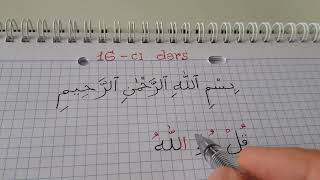 16-cı dərs
بِسْمِ ٱللَّهِ ٱلرَّحْمَٰنِ ٱلرَّحِيمِ
قُلْ اللَّهُ